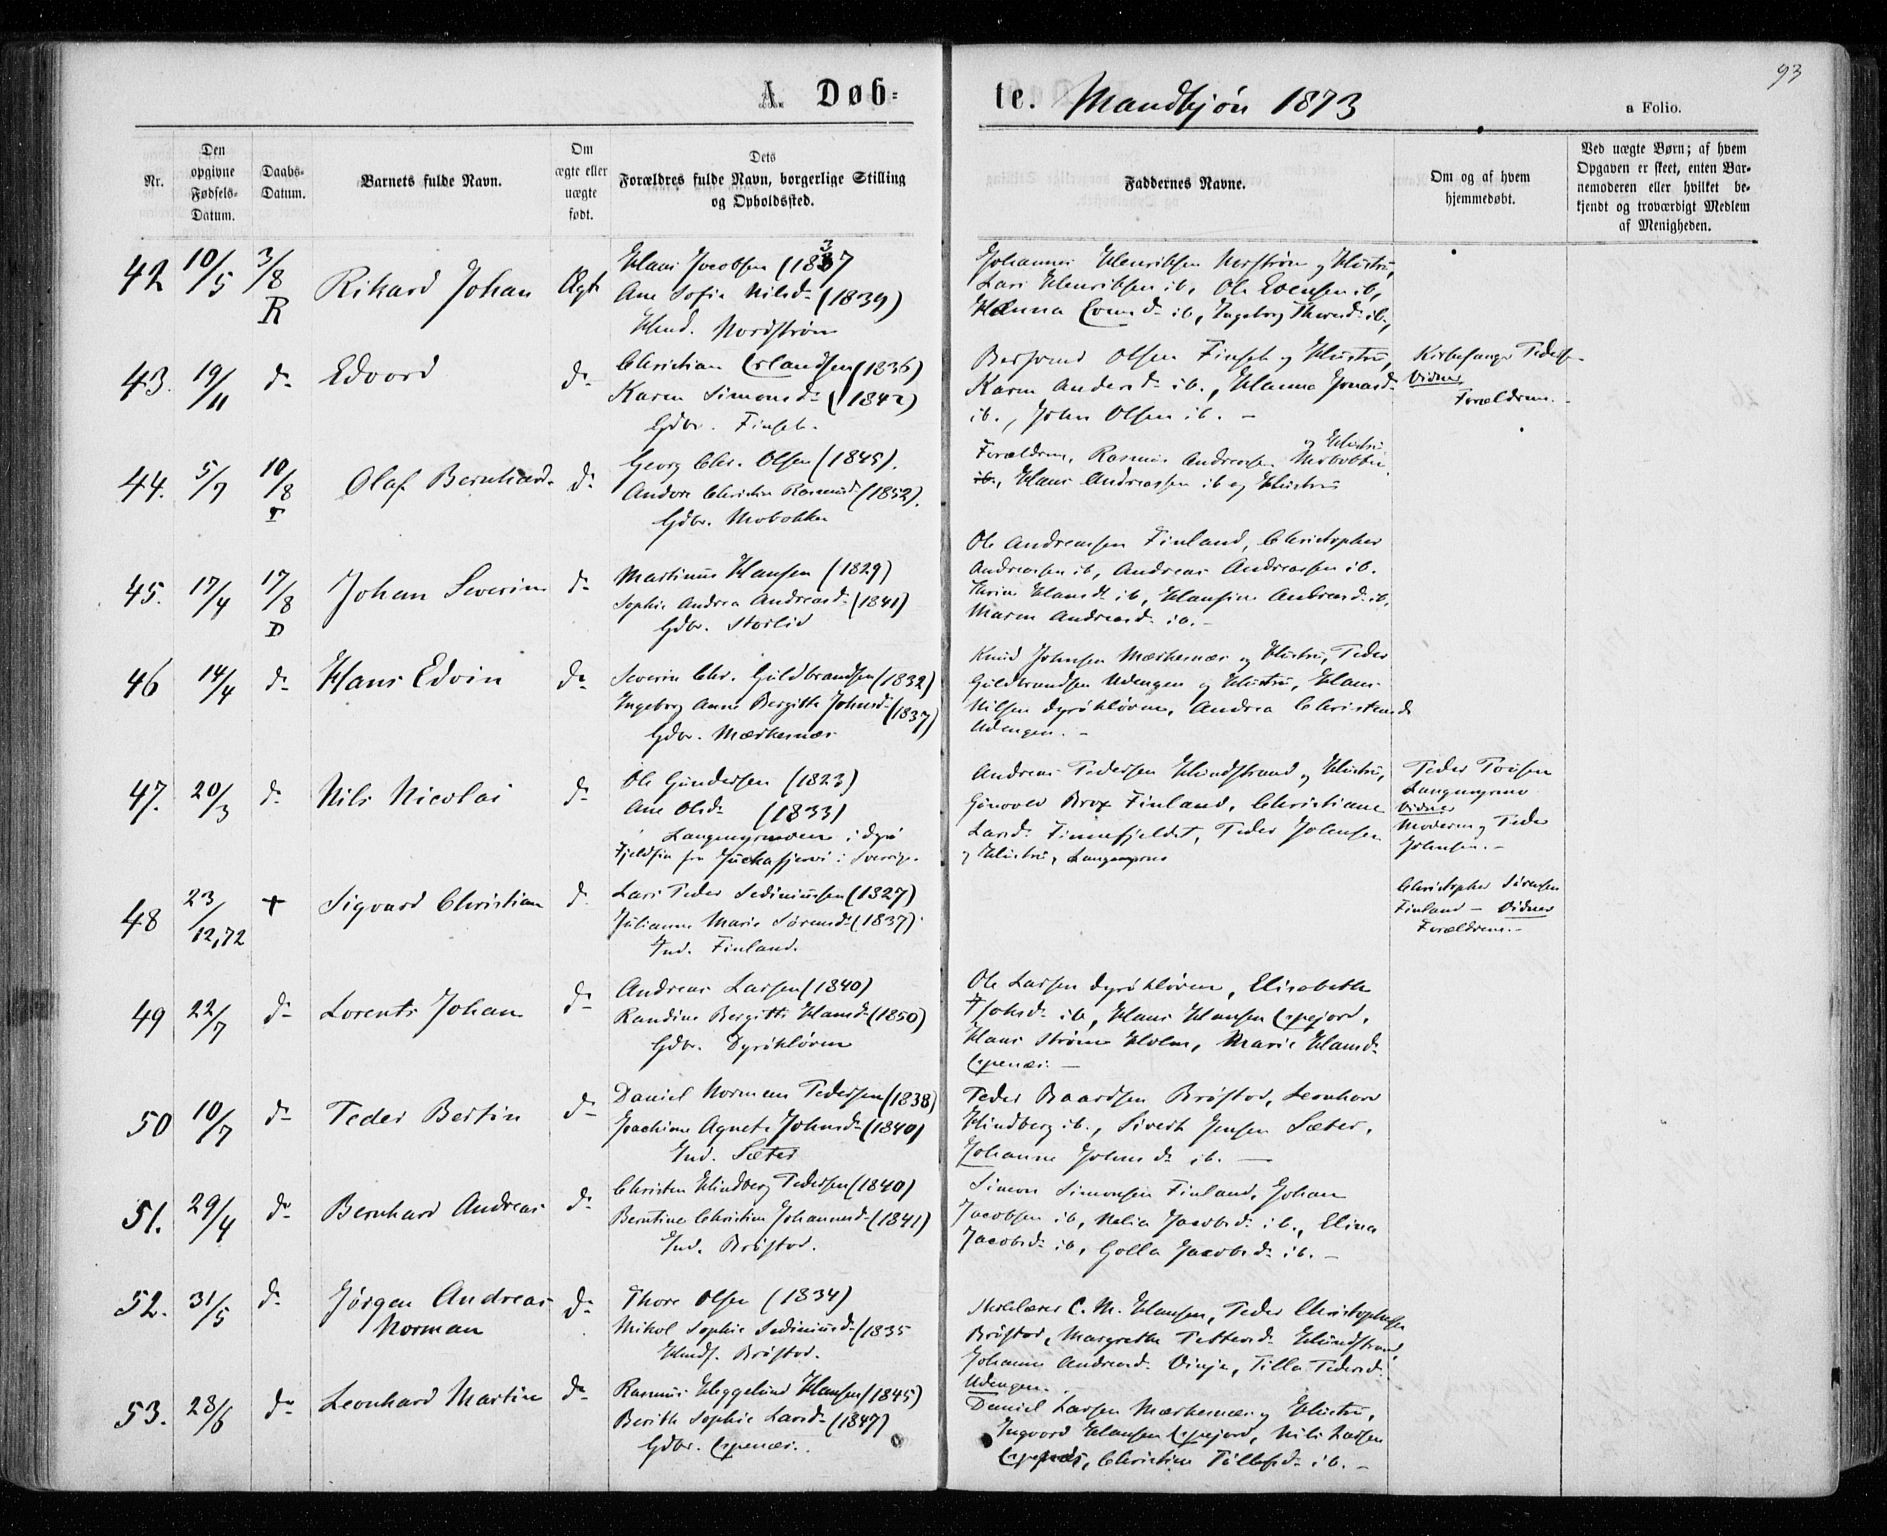 93
A Døb=
te. Mandkjøn 1873
a Folio.
Nr.
Den opgivne Fødsels-Datum.
Daabs-Datum.
Barnets fulde Navn.
Om ægte eller uægte født.
Dets Forældres fulde Navn, borgerlige Stilling og Opholdssted.
Faddernes Navne.
Om og af hvem hjemmedøbt.
Ved uægte Børn; af hvem Opgaven er skeet, enten Bar-nemoderen eller hvilket be-kjendt og troværdigt Medlem af Menigheden.
42 10/5 3/8 R Rikard Johan Ægte
Hans Jacobsen (1837
Ane Sofie Nilsd. (1839)
Hmd. Nordstrøm
Johannes Henriksen Norstrøm og Hustru,
Lars Henriksen ib, Ole Evensen ib,
Hanna Evensd. ib, Ingeborg Thoresd. ib,
43. 19/11 do Edvard do
Christian Erlandsen (1836)
Karen Simonsd. (1842)
Gdbr. Finset.
Olsen Finset og Hustru,
Karen Andersd. ib., Hanna Jonasd.
ib., John Olsen ib. -
Kirkesanger Peders
Vidner
Forældrene. -
44. 5/7 10/8 Olaf Bernhard do
Georg Chr. Olsen (1845).
Andora Christine Rasmusd. (1852).
Gdbr. Mobakken
og Hustru
Forældrene, Rasmus Andreassen Mobakken
ib., Hans Andreassen ib og Hustru
45. 17/4 17/8 D Johan Severin do
Martinus Hansen (1829)
Sophie Andrea Andreasd. (1841)
Gdbr. Storlid
Ole Andreassen Finland, Christopher
Andreassen ib, Andreas Andreassen ib.
Hansd. ib, Hansine Andreasd. ib,
Maren Andreasd. ib. -
46 14/4 do Hans Edvin do
Severin Chr. Guldbrandsen (1832)
Ingeborg Anne Bergitte Johnsd. (1837)
Gdbr. Mærkesnæs
Knud Johnsen Mærkesnæs og Hustru, Peder
Guldbrandsen Udengen og Hustru, Hans
Nilsen Dyrøkløven, Andrea Christensd.
Udengen. -
47. 20/3 do Nils Nicolai do
Ole Gundersen (1823)
Ane Olsd. (1833)
i Dyrø
Fjeldfin fra Juckasjervi i Sverige.
Andreas Pedersen Hundstrand og Hustru,
Brox Finland, Christiane
Larsd. Finnefjeldet, Peder Johnsen
og Hustru, Langmyrmo
Peder
Langmyrmo
Vidner
Moderen og Peder
Johnsen. -
48 23/12,72 + Sigvard Christian do
Lars Peder Sediniussen (1827)
Julianne Marie Sørensd. (1837)
Ind. Finland.
Christopher Sørensen
Finland - Vidner
Forældrene. -
49 22/7 do Lorents Johan do
Andreas Larsen (1840)
Randine Bergitte Hansd. (1850)
Gdbr. Dyrøkløven
Ole Larsen Dyrøkløven, Elisabeth
ib, Hans Hansen Espejord,
Hans Strøm Holm, Marie Hansd.
Espenæs. -
50 10/7 do Peder Bertin do
Daniel Norman Pedersen (1838)
Joachime Agnete Johnsd. (1840)
Ind. Sæter
Peder Baardsen Brøstad, Leonhard
Hindberg ib., Sivert Jensen Sæter,
Johanne Johnsd. ib. -
51. 29/4 do Bernhard Andreas do
Christen Hindberg Pedersen (1840)
Berntine Christine Johannesd. (1841)
Ind. Brøstad.
Simon Simonsen Finland, Johan
Jacobsen ib, Nelia Jacobsd. ib., Elina
Jacobsd. ib, Golla Jacobsd. ib. -
52. 31/5 do Jørgen Andreas Norman do
Thore Olsen (1834)
Nikol. Sophie Sediniusd. (1835
Hmds. Brøstad.
Skolelærer C. M. Hansen, Peder Christophersen
Brøstad, Margrethe Pettersd. Hundstrand,
Johanne Andreasd. Vinje, Pilla Pedersd.
Udengen.
53. 28/6 do Leonhard Martin do
Rasmus Heggelund Hansen (1845)
Berith Sophie Larsd. (1847)
Gdbr. Espenæs.
Daniel Larsen Mærkesnæs og Hustru,
Ingvard Hansen Espejord, Nils Larsen
Espenæs, Christine ib. -